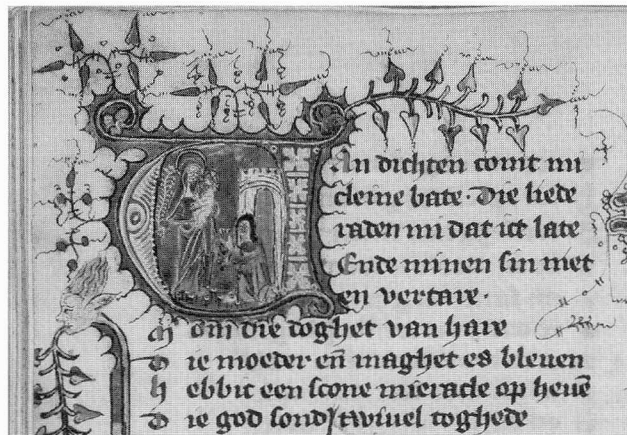 VAn dichten comt mi
cleine bate· Die liede
raden mi dat ict late
Ende minen sin niet
en vertare·
M' om die doghet van hare
D ie moeder en̄ maghet es bleuen
h ebbic een scone mieracle op heuē
D ie god sond' twiuel toghede